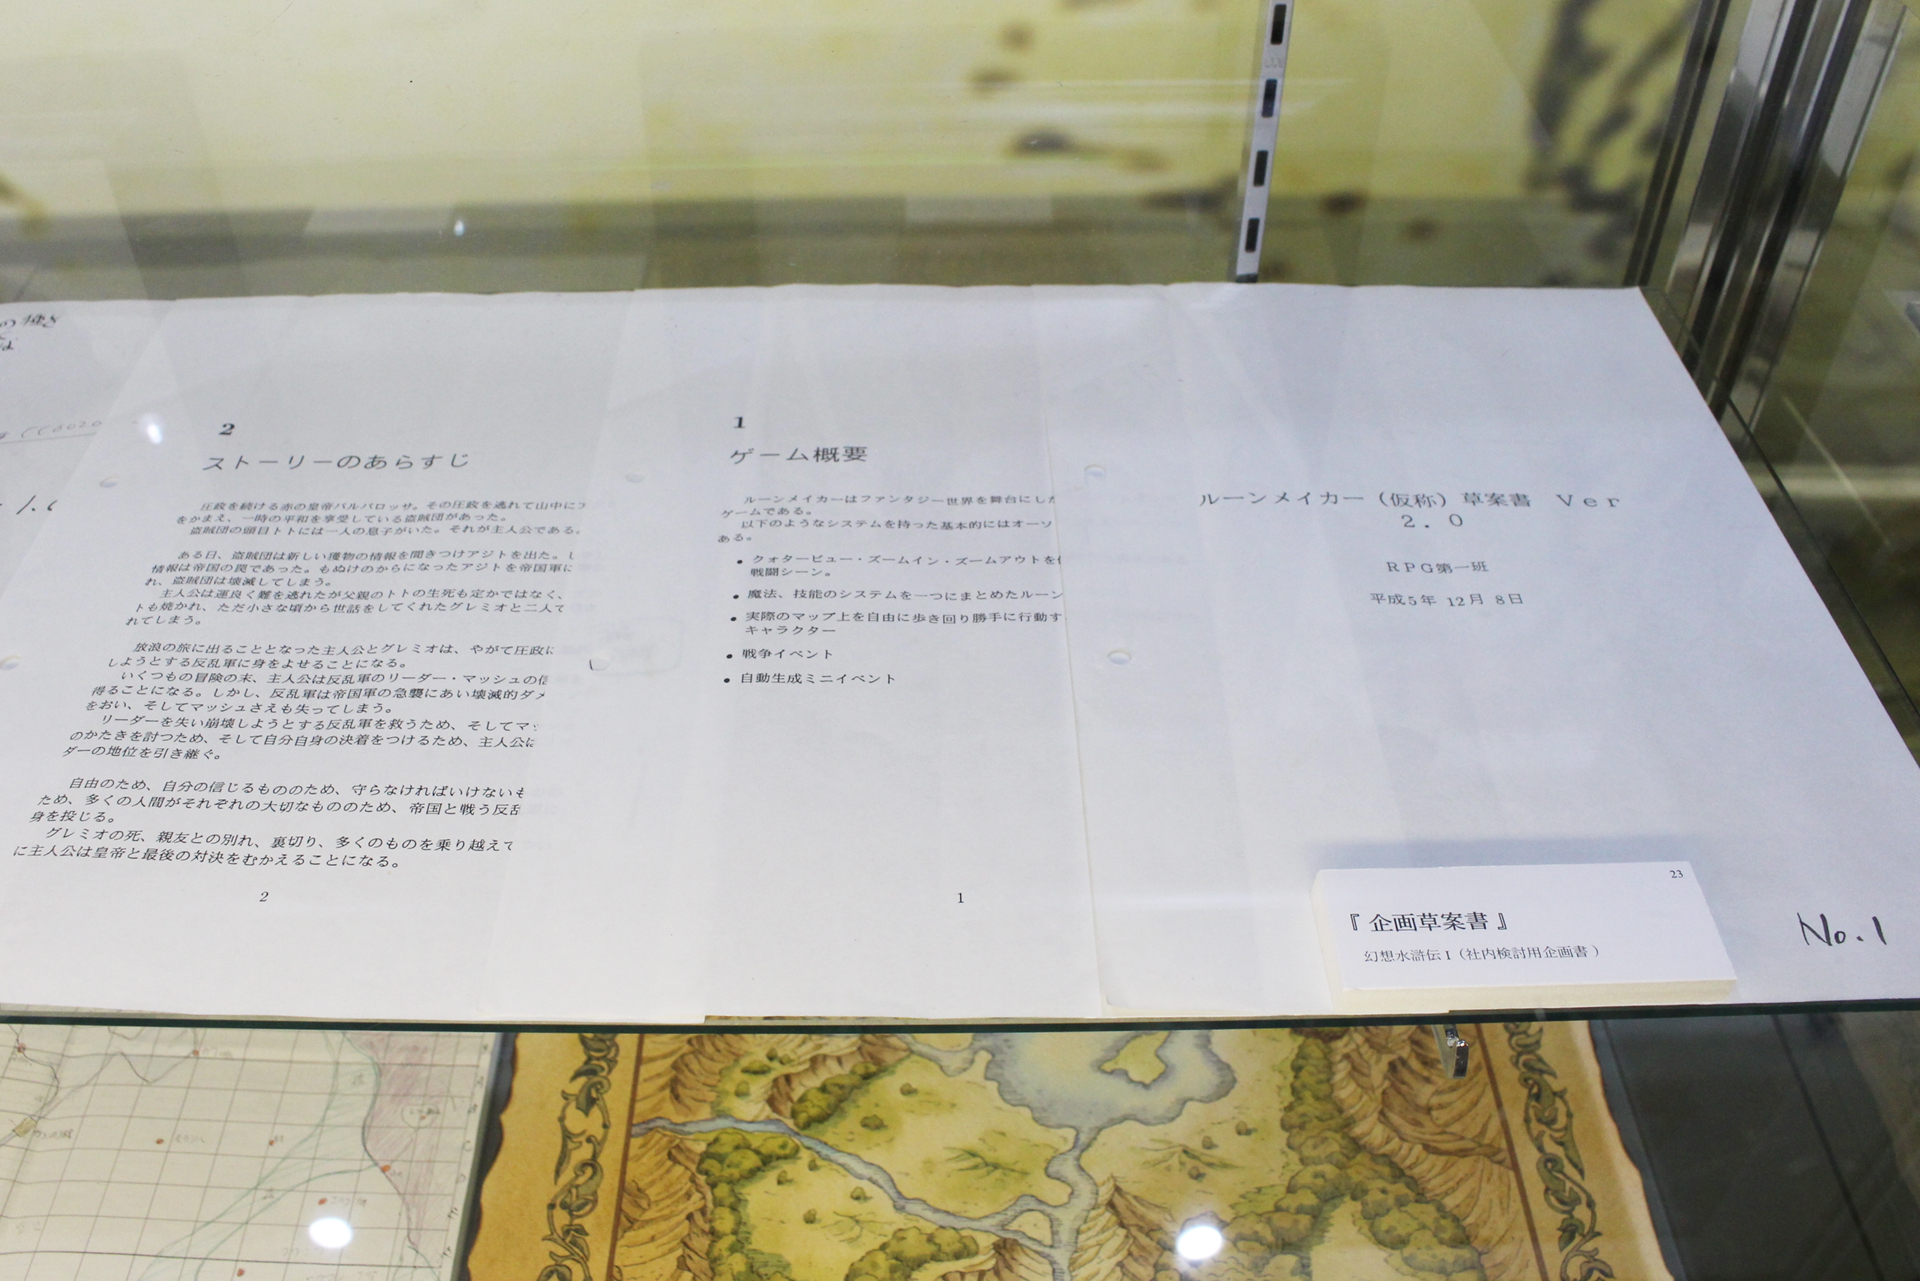 ルーンメイカー（仮称）草案書　Ｖｅｒ
２．０
ＲＰＧ第一班
平成5年 12月 8日
No.1
23
『 企画草案書 』
幻想水滸伝 I（社内検討用企画書 ）
1
ゲーム概要
ルーンメイカーはファンタジー世界を舞台にした
ゲームである。
以下のようなシステムを持った基本的にはオーソ
ある。
• クォータービュー・ズームイン・ズームアウトを
戦闘シーン。
• 魔法、技能のシステムを一つにまとめたルーン
• 実際のマップ上を自由に歩き回り勝手に行動す
キャラクター
• 戦争イベント
• 自動生成ミニイベント
1
2
ストーリーのあらすじ
圧政を続ける赤の皇帝バルバロッサ。その圧政を逃れて山中に
をかまえ、一時の平和を享受している盗賊団があった。
盗賊団の頭目トトには一人の息子がいた。それが主人公である。
ある日、盗賊団は新しい獲物の情報を聞きつけアジトを出た。
情報は帝国の罠であった。もぬけのからになったアジトを帝国軍に
れ、盗賊団は壊滅してしまう。
主人公は運良く難を逃れたが父親のトトの生死も定かではなく、
トも焼かれ、ただ小さな頃から世話をしてくれたグレミオと二人
れてしまう。
放浪の旅に出ることとなった主人公とグレミオは、やがて圧政に
しようとする反乱軍に身をよせることになる。
いくつもの冒険の末、主人公は反乱軍のリーダー・マッシュの
得ることになる。しかし、反乱軍は帝国軍の急襲にあい壊滅的ダメ
をおい、そしてマッシュさえも失ってしまう。
リーダーを失い崩壊しようとする反乱軍を救うため、そしてマッ
のかたきを討つため、そして自分自身の決着をつけるため、主人公は
ダーの地位を引き継ぐ。
自由のため、自分の信じるもののため、守らなければいけないも
ため、多くの人間がそれぞれの大切なもののため、帝国と戦う反乱
身を投じる。
グレミオの死、親友との別れ、裏切り、多くのものを乗り越えて
に主人公は皇帝と最後の対決をむかえることになる。
2